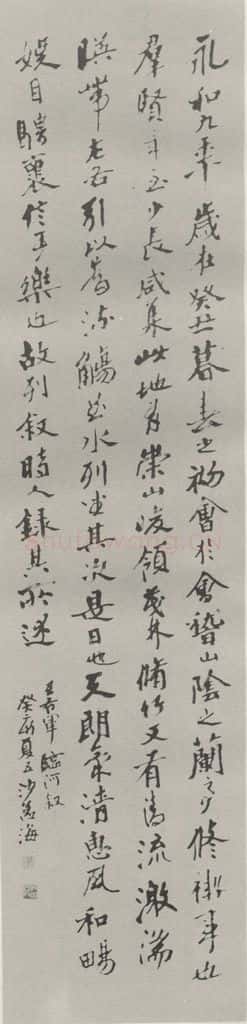 永和九年歲在癸丑暮春之初會於會稽山陰之蘭亭修禊事也
羣賢畢至少長咸集此地有崇山峻領茂林脩竹又有清流激湍
映帶左右引以為流觴曲水列坐其次是日也天朗氣清惠風和暢
娛目騁懷信可樂也故列叙時人錄其所述
王右軍臨河叙
癸亥夏五沙孟海